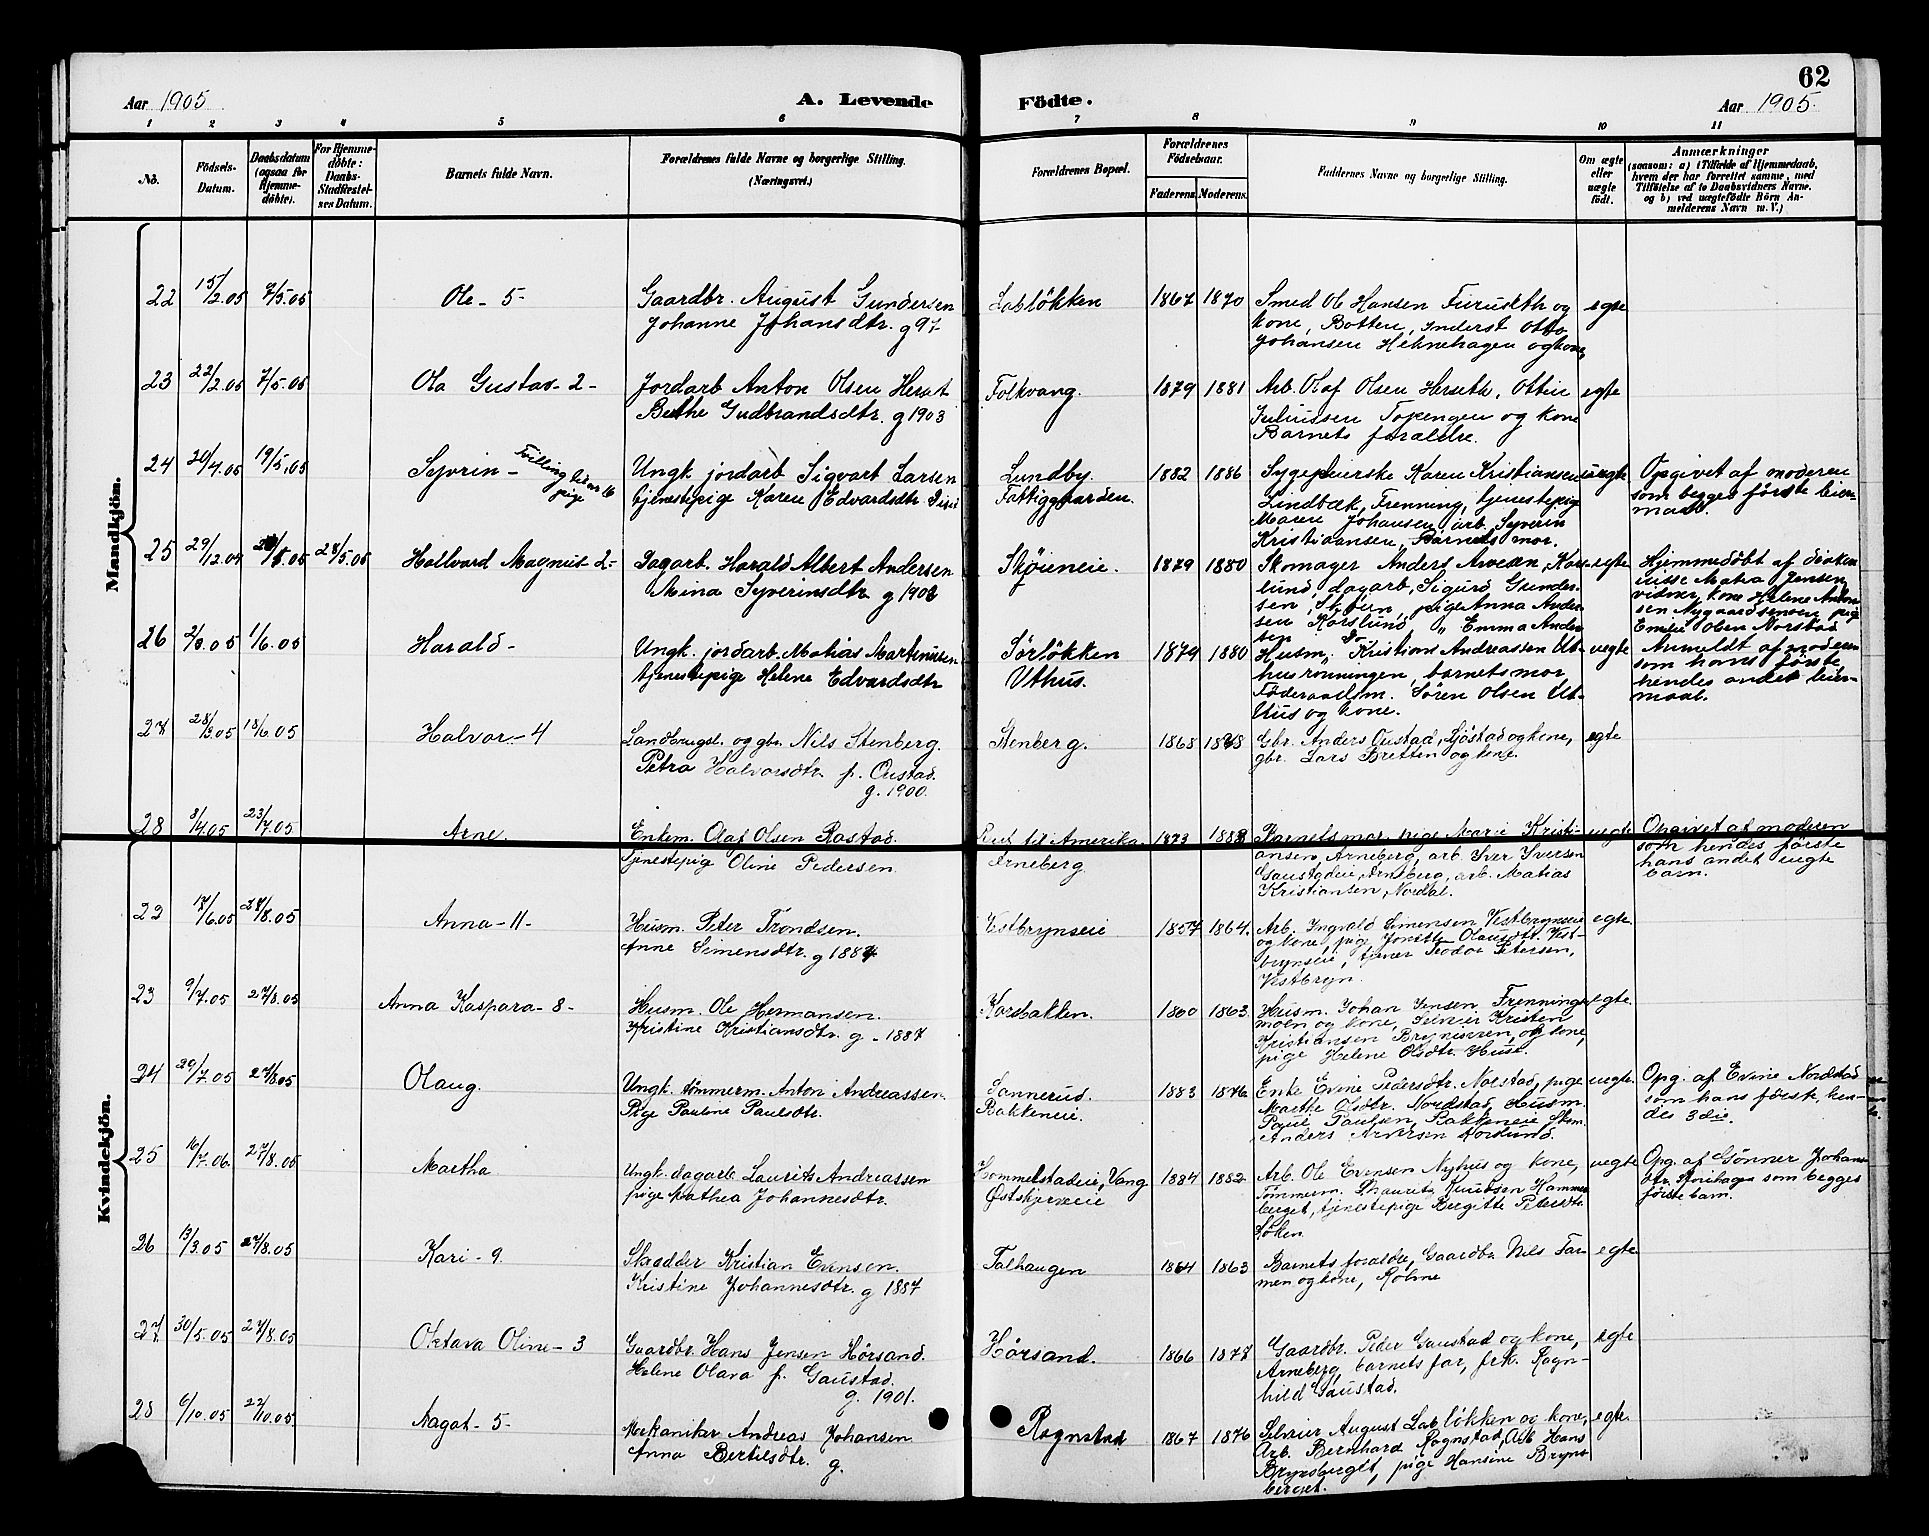 62
Aar 1905
A. Levende
Födte.
Aar 1905
1 2 3 4 5 6 7 8 9 10 11
No.
Födsels-
Datum.
Daabsdatum
(ogsaa for
Hjemme-
döbte).
For Hjemme-
döbte:
Daabs-
Stadfæstel-
ses Datum.
Barnets fulde Navn.
Forældrenes fulde Navne og borgerlige Stilling.
(Næringsvei.)
Forældrenes Bopæl.
Forældrenes
Födselsaar.
Faderens
Moderens.
Faddernes Navne og borgerlige Stilling.
Om ægte
eller
uægte
født.
Anmærkninger
(saasom: a) i Tilfælde af Hjemmedaab,
hvem der har forrettet samme, med
Tilföielse af to Daabsvidners Navne,
og b) ved uægtefödte Börn An-
melderens Navn m. V.)
Mandkjön.
22 15/2.05 7/5.05 Ole - 5 -
Gaardbr. August Gundersen
Johanne Johansdtr. g 97
Labløkken 1867 1870
Smed Ole Hansen Furuseth og
kone, Botten, Inderst Otto
Johansen Heknehagen og kone,
egte
23 22/2.05 7/5.05 Ola Gustav - 2 -
Jordarb Anton Olsen Herset
Berthe Gudbrandsdtr. g 1903
Folkvang. 1879 1881
Arb. Olaf Olsen Herseth, Ottin
Juliussen Topengen og kone
Barnets forældre.
egte
24 20/4.05 19/5.05 Syvrin - Tvilling
pige
Ungk. jordarb Sigvart Larsen
tjenestepige Karen Edvardsdtr
Lundby.
Fattiggaarden. 1882 1886
Sygepleierske Karen Kristiansen
Lindbæk, Frenning, tjenestepige
Maren Johansen, arb. Syverin
Kristiansen, Barnets mor.
uegte
Opgivet af moderen
som begges første leier-
maal.
25 29/12.04 28/5.05 Hallvard Magnus 2 -
Dagarb. Harald Albert Andersen
Mina Syverinsdtr g 1902
Skøieneie. 1879 1880
Skomager Anders Arvesen, Kors-
lund, dagarb, Sigurd Gunder-
sen, Skøien, pige Anna Ander
sen Korslund " Emma Ander
sen do
egte
Hjemmedøbt af diakon
isse Matea Jensen,
vidner, kone Helene Anton
sen Nygaardsmoen pige
Emilie Olsen Norstad
26 2/3.05 1/6.05 Harald -
Ungk. jordarb. Matias Martinusen
tjenestepige Helene Edvardsdtr
Sørløkken
Uthus. 1874 1880
Husm. Kristians Andreassen Ut-
husrønningen, barnets mor
Føderaadsm. Søren Olsen Ut-
hus og kone.
uegte
Anmeldt af moderen
som hans første,
hendes andet leier-
maal.
27 28/3.05 18/6.05 Halvor - 4
Landbrugsl. og gbr. Nils Stenberg.
Petra Halvorsdtr. f. Oustad.
g. 1900.
Stenberg. 1868 1878
Gbr. Anders Oustad, Sjøstad og kone,
gbr. Lars Bretten og kone.
egte
28 8/4.05 23/7.05 Arne.
Enkem. Olaf Olsen Rastad.
Tjenestepige Oline Pedersen
Reist til Amerika
Arneberg 1873 1883
Barnets mor, pige Marie Kristi-
ansen, Arneberg, arb. Iver Iversen
Gaustadeie, Arneberg, arb. Matias
Kristiansen, Nordal.
uegte
Opgivet af moderen
som hendes første
hans andet uegte
barn.
Kvindekjön.
22 17/6.05 27/8.05 Anna - 11 -
Husm. Peter Trondsen.
Anne Simensdtr. g 1884
Vestbrynseie 1857 1864.
Arb. Ingvald Simensen Vestbrynseie
og kone, pige Jonette Olausdtr. Vest-
brynseie, tjener Teodor Petersen,
Vestbryn.
egte
23 9/7.05 27/8.05 Anna Kaspara - 8 -
Husm. Ole Hermansen.
Kristine Kristiansdtr. g - 1887
Korsbakken. 1860 1863.
Husm. Johan Jensen Frennings
moen og kone, Kristen
Kristiansen Brynseieren, og kone,
pige Helene Olsdtr. Huse.
egte
24 20/7.05 27/8.05 Olaug.
Ungk. tømmerm. Anton Andreassen.
Pige Paulene Paulsdtr.
Sannerud.
Bakkeneie. 1883 1876
Enke Evine Pedersdtr. Nordstad, pige
Marthe Olsdtr. Nordstad, Husm.
Paul Paulsen, Bakkeneie Skom.
Anders Arvesen Korslund.
uegte
Opg. af Evine Nordstad
som hans første, hen-
des 3die.
25 16/7.05 27/8.05 Martha
Ungk. dagarb Laurits Andreassen
pige Mathea Johannesdtr.
Hommelstadeie, Vang
Østskjerneie 1884 1882
Arb. Ole Evensen Nyhus og kone,
Tømmerm. Laurits Knutsen Hammer
berget, tjenestepige Birgitte Petersdtr.
Løken
uegte
Opg. af Gønner Johans-
dtr. som begges
første barn.
26 13/3.05 27/8.05 Kari - 9
Skrædder Kristian Evensen.
Kristine Johannesdtr. g 1887
Falhaugen 1864 1863
Barnets forældre, Gaardbr. Nils Far
men og kone, Rolme
egte
27 30/5.05 27/8.05 Oktava Oline - 3
Gaardbr. Hans Jensen Hørsand.
Helene Olava f. Gaustad.
g. 1901.
Hørsand. 1866 1877
Gaardbr. Peder Gaustad og kone,
Arneberg, barnets far, frk. Ragn-
hild Gaustad.
egte
28 6/10.05 22/10.05 Aagot - 5 -
Mekaniker Andreas Johansen
Anna Bertilsdtr. g.
Rognstad 1867 1876
Selveier August Labløkken og kone,
Arb. Bernhard Rognstad, Arb Hans
Brynsberget, pige Hansine Bryns
berget.
egte.